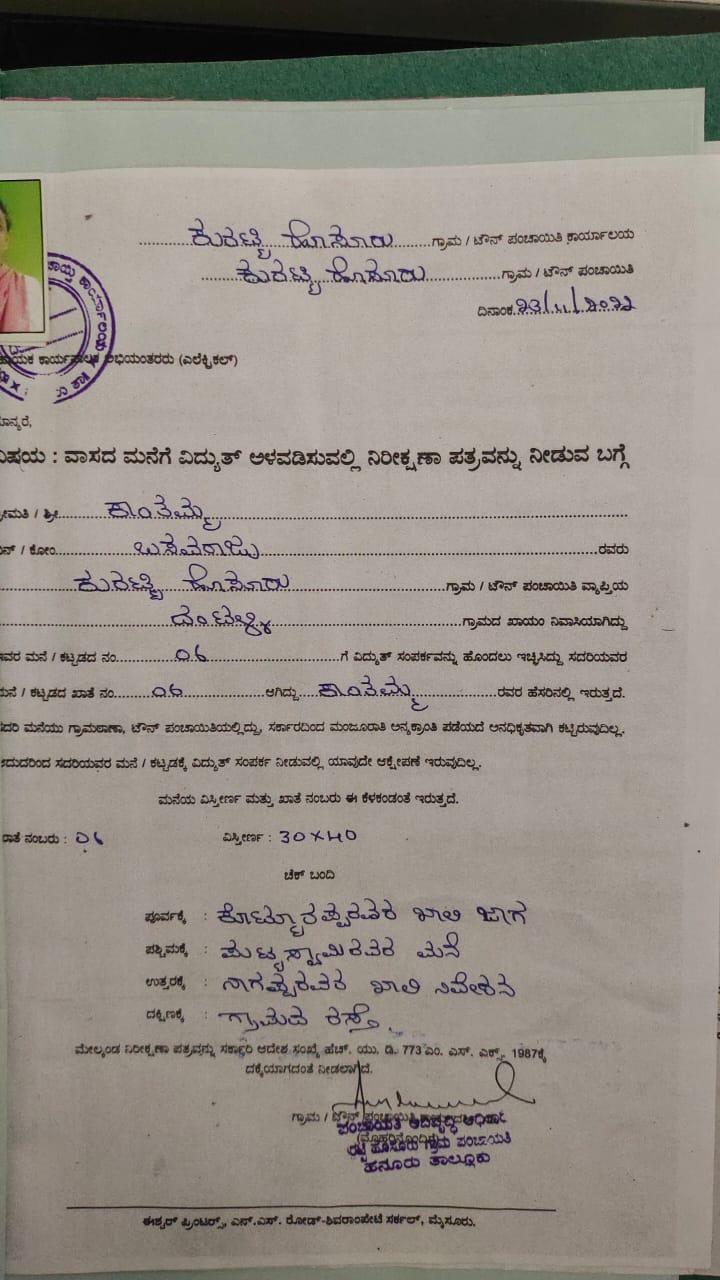 ಕುರಟ್ಟಿ ಹೊಸೂರು ಗ್ರಾಮ / ಟೌನ್ ಪಂಚಾಯಿತಿ ಕಾರ್ಯಾಲಯ
ಕುರಟ್ಟಿ ಹೊಸೂರು ಗ್ರಾಮ / ಟೌನ್ ಪಂಚಾಯಿತಿ
ದಿನಾಂಕ 23/11/2022
ಕಾರ್ಯಾಲಯ
ಾಯಕ ಕಾರ್ಯಪಾಲಕ ಅಭಿಯಂತರರು (ಎಲೆಕ್ಟ್ರಿಕಲ್)
ಾನ್ಯರೆ,
ವಿಷಯ : ವಾಸದ ಮನೆಗೆ ವಿದ್ಯುತ್ ಅಳವಡಿಸುವಲ್ಲಿ ನಿರೀಕ್ಷಣಾ ಪತ್ರವನ್ನು ನೀಡುವ ಬಗ್ಗೆ
ೀಮತಿ / ಶ್ರೀ ಕಾಂತಮ್ಮ
ಬಿನ್ / ಕೋಂ ಬಸವರಾಜು ರವರು
ಕುರಟ್ಟಿ ಹೊಸೂರು ಗ್ರಾಮ / ಟೌನ್ ಪಂಚಾಯಿತಿ ವ್ಯಾಪ್ತಿಯ
ದಂಟಳ್ಳಿ ಗ್ರಾಮದ ಖಾಯಂ ನಿವಾಸಿಯಾಗಿದ್ದು
ಇವರ ಮನೆ / ಕಟ್ಟಡದ ನಂ. 06 ಗೆ ವಿದ್ಯುತ್ ಸಂಪರ್ಕವನ್ನು ಹೊಂದಲು ಇಚ್ಛಿಸಿದ್ದು ಸದರಿಯವರ
ಮನೆ / ಕಟ್ಟಡದ ಖಾತೆ ನಂ. 06 ಆಗಿದ್ದು ಕಾಂತಮ್ಮ ರವರ ಹೆಸರಿನಲ್ಲಿ ಇರುತ್ತದೆ.
ಸದರಿ ಮನೆಯು ಗ್ರಾಮಠಾಣಾ, ಟೌನ್ ಪಂಚಾಯಿತಿಯಲ್ಲಿದ್ದು, ಸರ್ಕಾರದಿಂದ ಮಂಜೂರಾತಿ ಅನ್ಯಕ್ರಾಂತಿ ಪಡೆಯದೆ ಅನಧಿಕೃತವಾಗಿ ಕಟ್ಟಿರುವುದಿಲ್ಲ.
ಆದುದರಿಂದ ಸದರಿಯವರ ಮನೆ / ಕಟ್ಟಡಕ್ಕೆ ವಿದ್ಯುತ್ ಸಂಪರ್ಕ ನೀಡುವಲ್ಲಿ ಯಾವುದೇ ಆಕ್ಷೇಪಣೆ ಇರುವುದಿಲ್ಲ.
ಮನೆಯ ವಿಸ್ತೀರ್ಣ ಮತ್ತು ಖಾತೆ ನಂಬರು ಈ ಕೆಳಕಂಡಂತೆ ಇರುತ್ತದೆ.
ಖಾತೆ ನಂಬರು : 06 ವಿಸ್ತೀರ್ಣ : 30×40
ಚೆಕ್ ಬಂದಿ
ಪೂರ್ವಕ್ಕೆ : ಖಾಲಿ ಜಾಗ
ಪಶ್ಚಿಮಕ್ಕೆ : ಪುಟ್ಟಸ್ವಾಮಿರವರ ಮನೆ
ಉತ್ತರಕ್ಕೆ : ನಾಗಪ್ಪರವರ ಖಾಲಿ ನಿವೇಶನ
ದಕ್ಷಿಣಕ್ಕೆ : ಗ್ರಾಮದ ರಸ್ತೆ
ಮೇಲ್ಕಂಡ ನಿರೀಕ್ಷಣಾ ಪತ್ರವನ್ನು ಸರ್ಕಾರಿ ಆದೇಶ ಸಂಖ್ಯೆ ಹೆಚ್. ಯು. ಡಿ. 773 ಎಂ. ಎಸ್. ಎಕ್ಸ್. 1987ಕ್ಕೆ
ದಕ್ಕೆಯಾಗದಂತೆ ನೀಡಲಾಗಿದೆ.
ಗ್ರಾಮ / ಟೌನ್ ಪಂಚಾಯಿತಿ
ಪಂಚಾಯಿತಿ ಅಭಿವೃದ್ಧಿ ಅಧಿಕಾರಿ
ಹೊಸೂರು ಗ್ರಾಮ ಪಂಚಾಯಿತಿ
ಹನೂರು ತಾಲ್ಲೂಕು
ಈಶ್ವರ್ ಪ್ರಿಂಟರ್ಸ್, ಎನ್.ಎಸ್. ರೋಡ್-ಶಿವರಾಂಪೇಟೆ ಸರ್ಕಲ್, ಮೈಸೂರು.